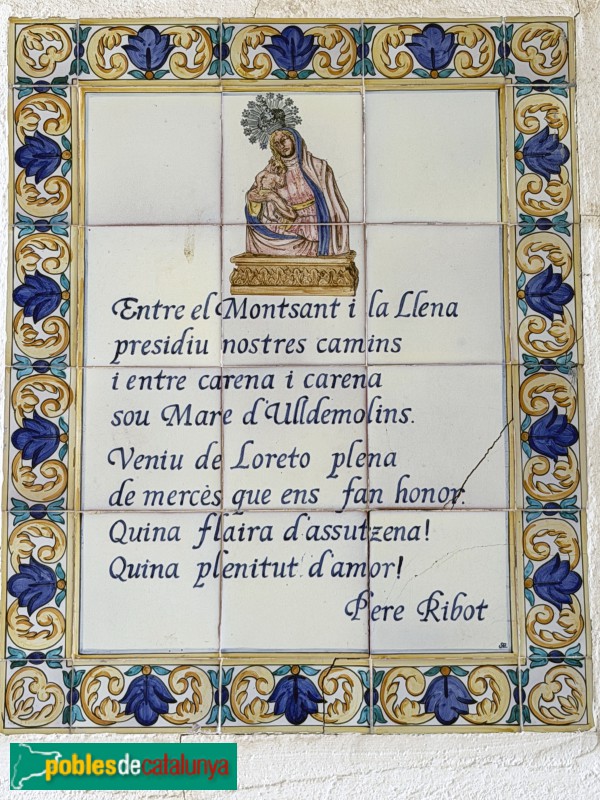 Entre el Montsant i la Llena
presidiu nostres camins
i entre carena i carena
sou Mare d'Ulldemolins.
Veniu de Loreto plena
de mercès que ens fan honor.
Quina flaira d'assutzena!
Quina plenitut d'amor!
Pere Ribot
poblesdecatalunya